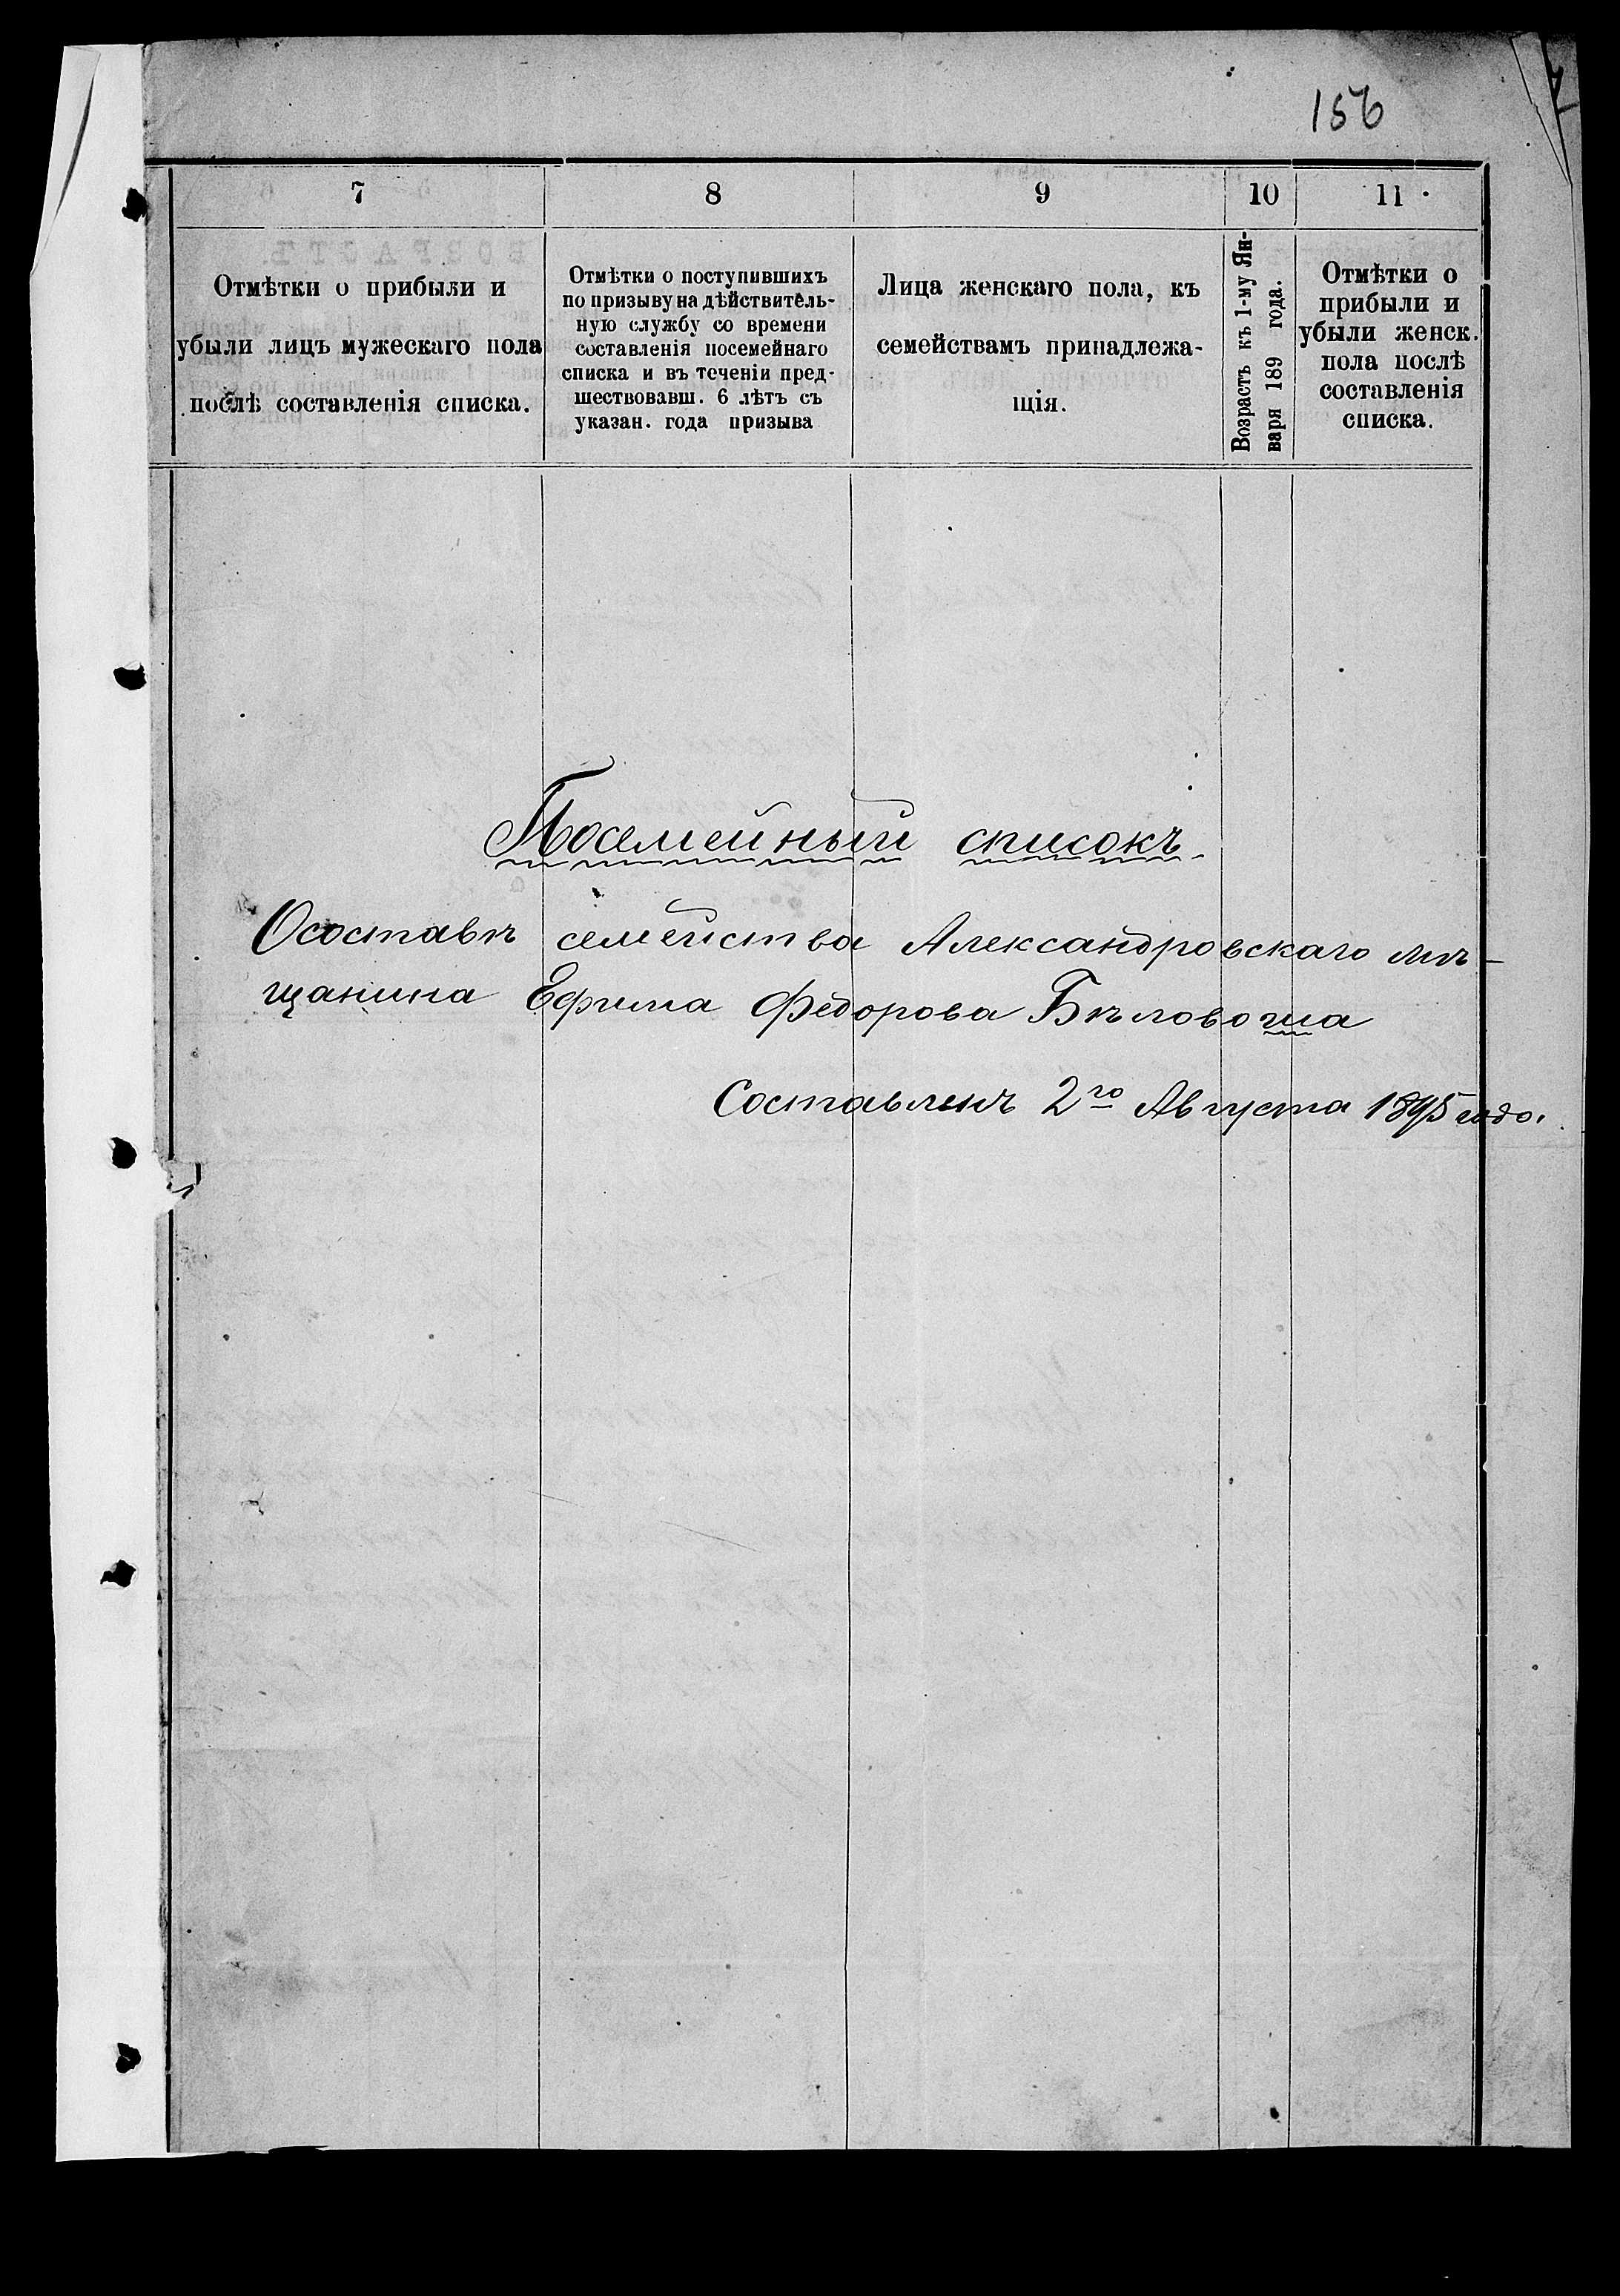 156
7
8
9
10
11
Отмѣтки о прибыли и
убыли лицъ мужескаго пола
послѣ составленія списка.
Отмѣтки о поступившихъ
по призыву на дѣйствитель-
ную службу со времени
составленія посемейнаго
списка и въ теченіи пред-
шествовавш. 6 лѣтъ съ
указан. года призыва
Лица женскаго пола, къ
семействамъ принадлежа-
щія.
Возрастъ къ 1-му Ян-
варя 189 года.
Отмѣтки о
прибыли и
убыли женск.
пола послѣ
составленія
списка.
Посемейный списокъ.
О составѣ семейства Александровскаго мѣ-
щанина Ефима Федорова Бѣловоша
Составленъ 2го Августа 1895 года.